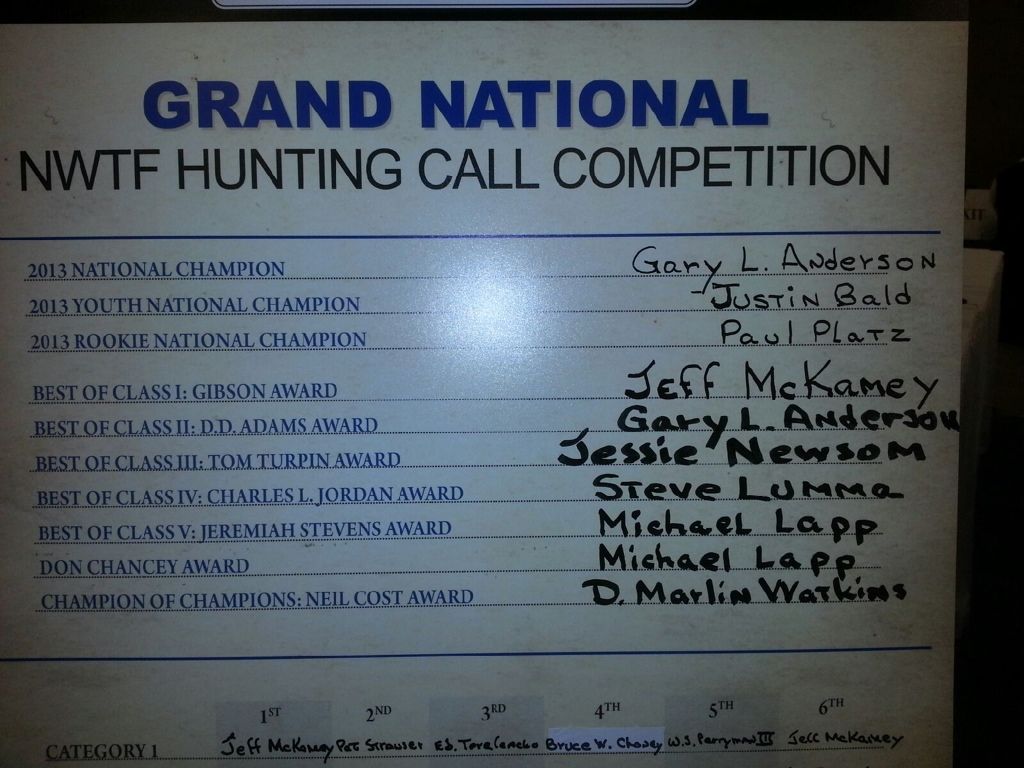 GRAND NATIONAL
NWTF HUNTING CALL COMPETITION
2013 NATIONAL CHAMPION Gary L. Anderson
2013 YOUTH NATIONAL CHAMPION Justin Bald
2013 ROOKIE NATIONAL CHAMPION Paul Platz
BEST OF CLASS I: GIBSON AWARD Jeff McKamey
BEST OF CLASS II: D.D. ADAMS AWARD Gary L. Anderson
BEST OF CLASS III: TOM TURPIN AWARD Jessie Newsom
BEST OF CLASS IV: CHARLES L. JORDAN AWARD Steve Lumma
BEST OF CLASS V: JEREMIAH STEVENS AWARD Michael Lapp
DON CHANCEY AWARD Michael Lapp
CHAMPION OF CHAMPIONS: NEIL COST AWARD D. Marlin Watkins
1ST 2ND 3RD 4TH 5TH 6TH
CATEGORY 1 Jeff McKamey Pat Strawser Ed. Bruce W. W.S. Perryman III Jeff McKamey